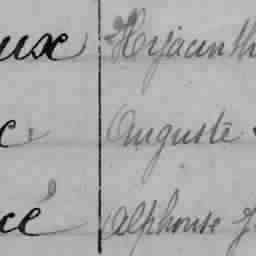 ux Hyacinth
c Auguste
cé Alphonse J